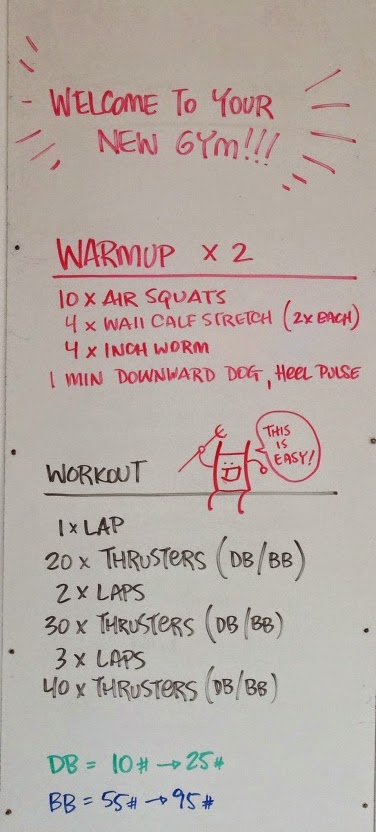 WELCOME TO YOUR
NEW GYM!!!
WARMUP x 2
10 x AIR SQUATS
4 x WALL CALF STRETCH (2x EACH)
4 x INCH WORM
1 MIN DOWNWARD DOG, HEEL PULSE
THIS
IS
EASY!
WORKOUT
1 x LAP
20 x THRUSTERS (DB/BB)
2 x LAPS
30 x THRUSTERS (DB/BB)
3 x LAPS
40 x THRUSTERS (DB/BB)
DB = 10# → 25#
BB = 55# → 95#